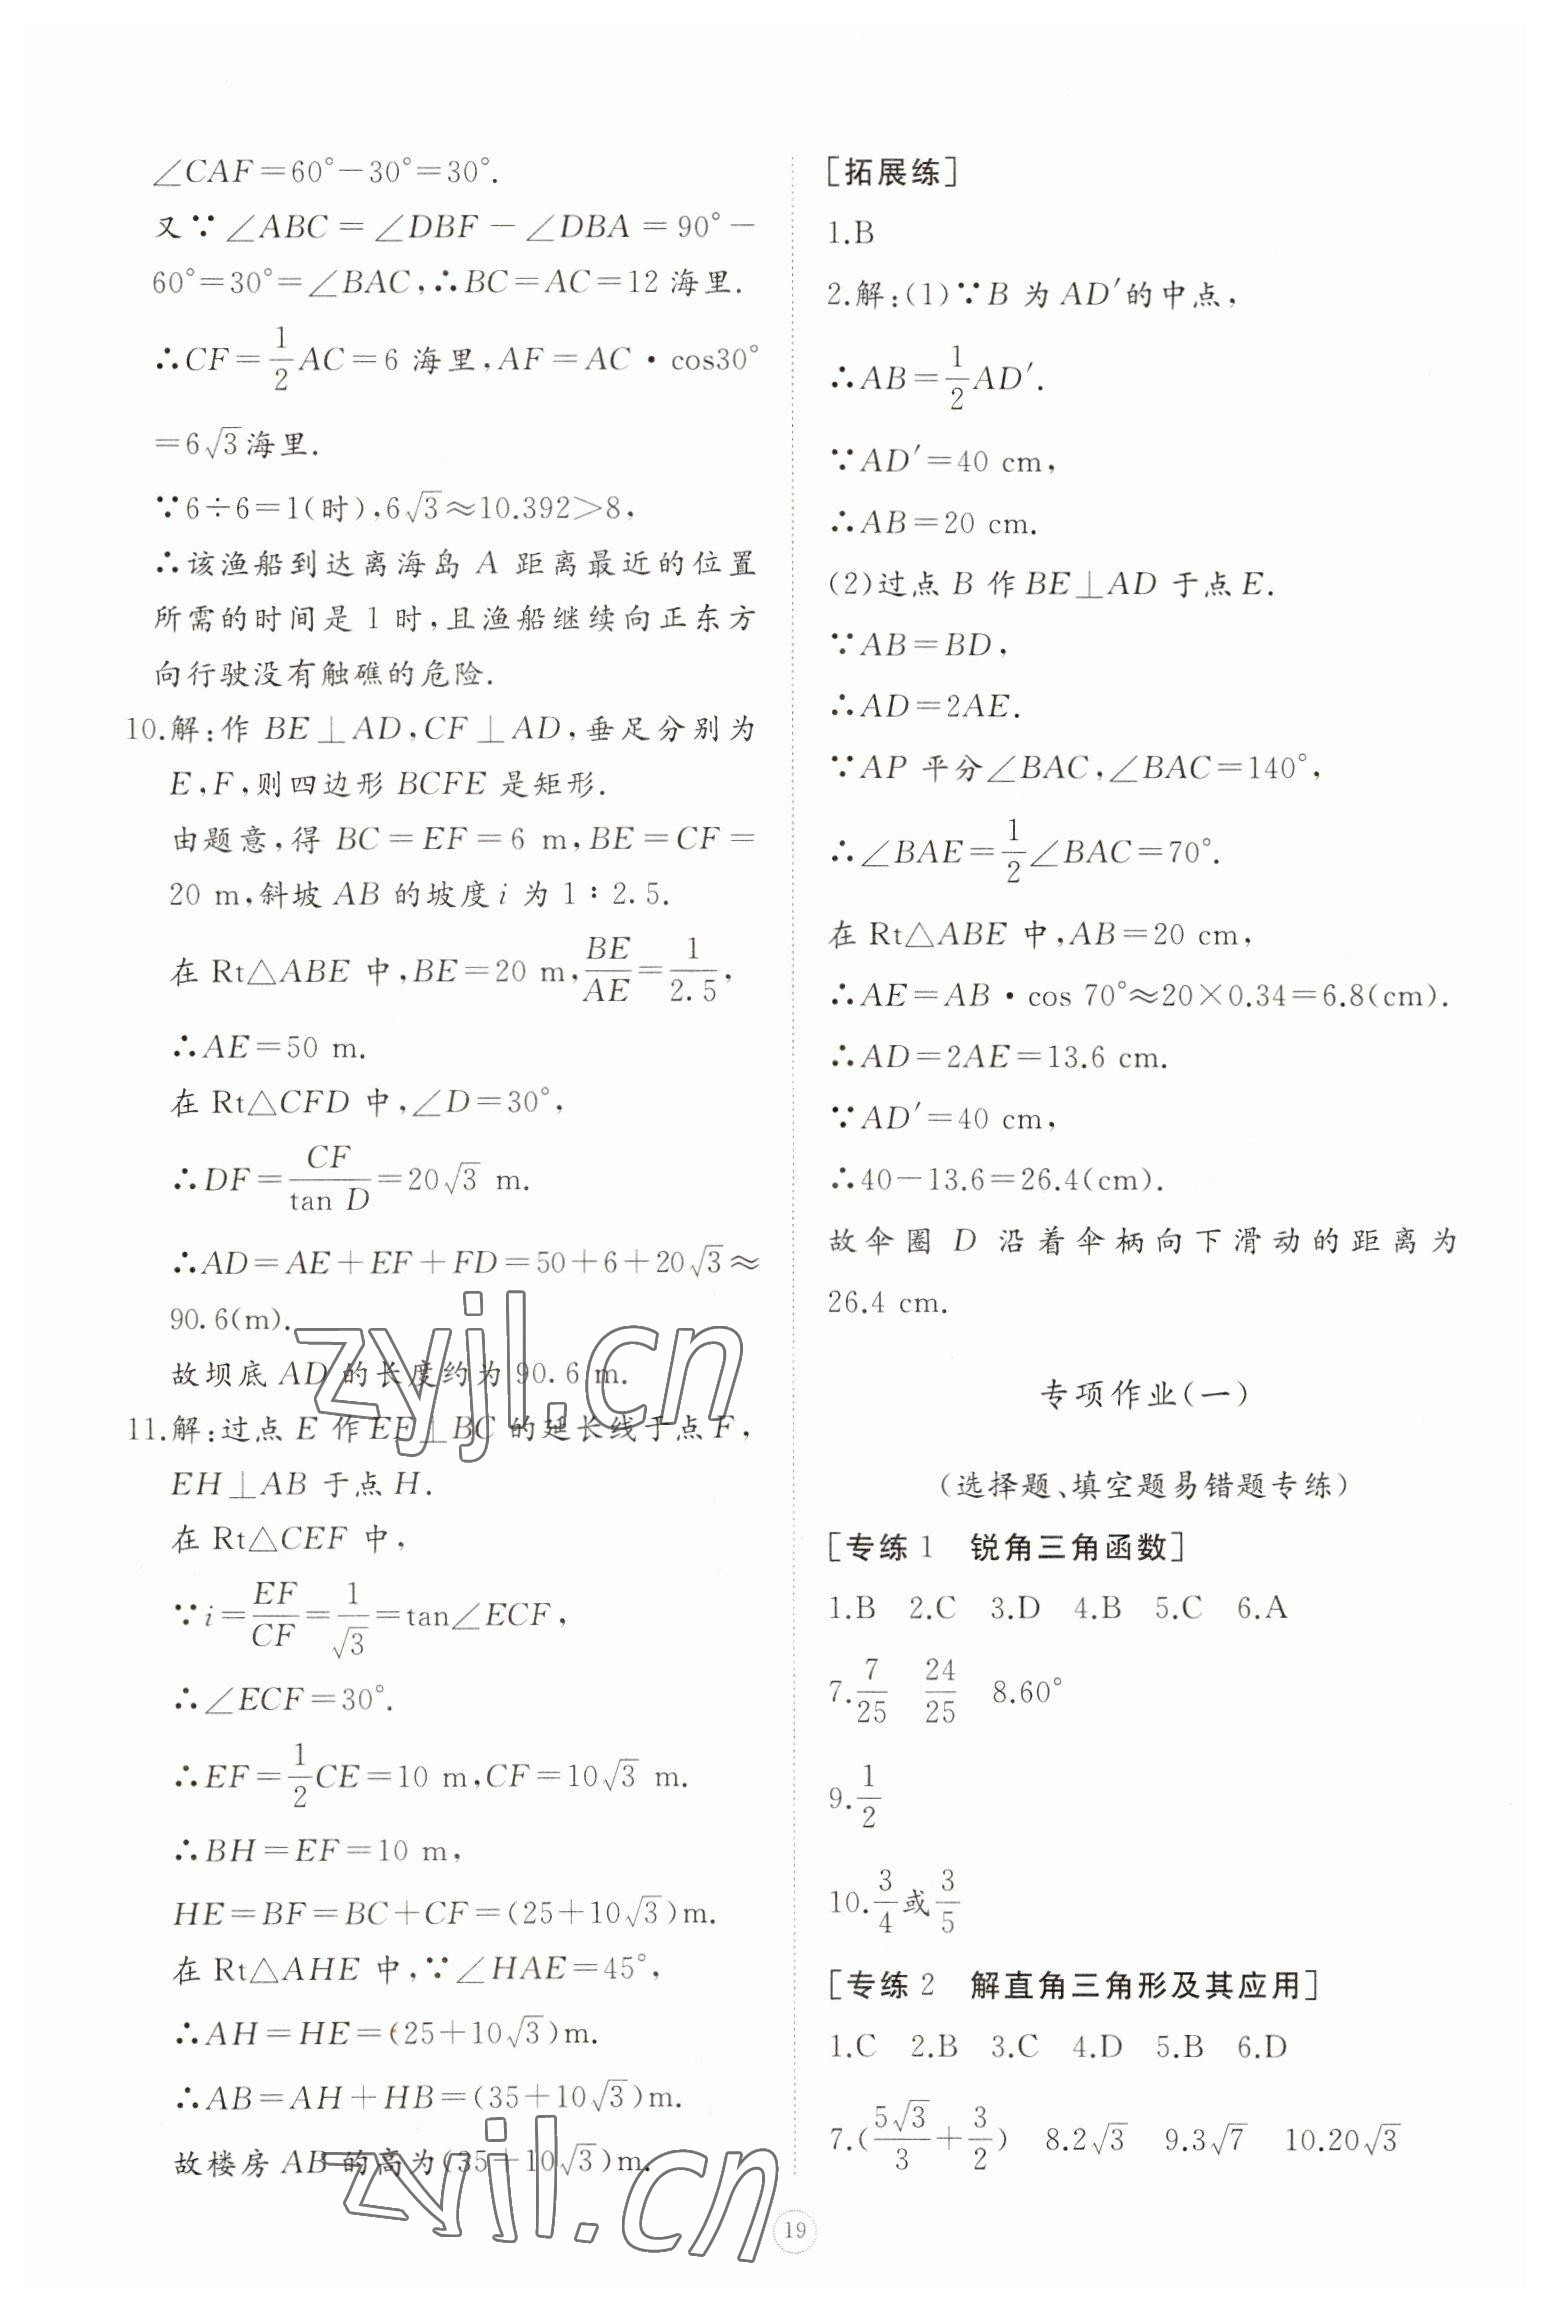 ∠CAF=60°-30°=30°.
又∵∠ABC=∠DBF-∠DBA=90°-
60°=30°=∠BAC,∴BC=AC=12 海里.
∴CF=1/2AC=6 海里,AF=AC·cos30°
=6√3海里.
∵6÷6=1(时),6√3≈10.392>8,
∴该渔船到达离海岛 A 距离最近的位置
所需的时间是 1 时,且渔船继续向正东方
向行驶没有触礁的危险.
10.解:作 BE⊥AD,CF⊥AD,垂足分别为
E,F,则四边形 BCFE 是矩形.
由题意,得 BC=EF=6 m,BE=CF=
20 m,斜坡 AB 的坡度 i 为 1∶2.5.
在 Rt△ABE 中,BE=20 m,BE/AE=1/2.5,
∴AE=50 m.
在 Rt△CFD 中,∠D=30°,
∴DF=CF/tan D=20√3 m.
∴AD=AE+EF+FD=50+6+20√3≈
90.6(m).
故坝底 AD 的长度约为 90.6 m.
11.解:过点 E 作 EF⊥BC 的延长线于点 F,
EH⊥AB 于点 H.
在 Rt△CEF 中,
∵i=EF/CF=1/√3=tan∠ECF,
∴∠ECF=30°.
∴EF=1/2CE=10 m,CF=10√3 m.
∴BH=EF=10 m,
HE=BF=BC+CF=(25+10√3)m.
在 Rt△AHE 中,∵∠HAE=45°,
∴AH=HE=(25+10√3)m.
∴AB=AH+HB=(35+10√3)m.
故楼房 AB 的高为(35+10√3)m.
[拓展练]
1.B
2.解:(1)∵B 为 AD′的中点,
∴AB=1/2AD′.
∵AD′=40 cm,
∴AB=20 cm.
(2)过点 B 作 BE⊥AD 于点 E.
∵AB=BD,
∴AD=2AE.
∵AP 平分∠BAC,∠BAC=140°,
∴∠BAE=1/2∠BAC=70°.
在 Rt△ABE 中,AB=20 cm,
∴AE=AB·cos 70°≈20×0.34=6.8(cm).
∴AD=2AE=13.6 cm.
∵AD′=40 cm,
∴40-13.6=26.4(cm).
故伞圈 D 沿着伞柄向下滑动的距离为
26.4 cm.
专项作业(一)
(选择题、填空题易错题专练)
[专练 1 锐角三角函数]
1.B 2.C 3.D 4.B 5.C 6.A
7.7/25 24/25 8.60°
9.1/2
10.3/4或3/5
[专练 2 解直角三角形及其应用]
1.C 2.B 3.C 4.D 5.B 6.D
7.(5√3/3+3/2) 8.2√3 9.3√7 10.20√3
19
zyjl.cn
zyjl.cn